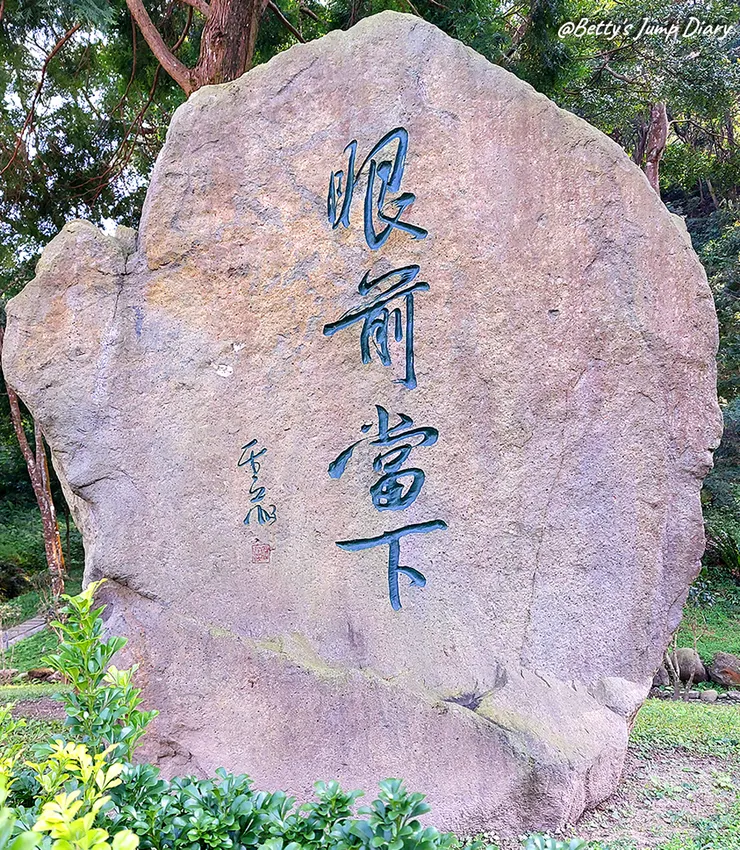 @Betty's Jump Diary
眼前當下